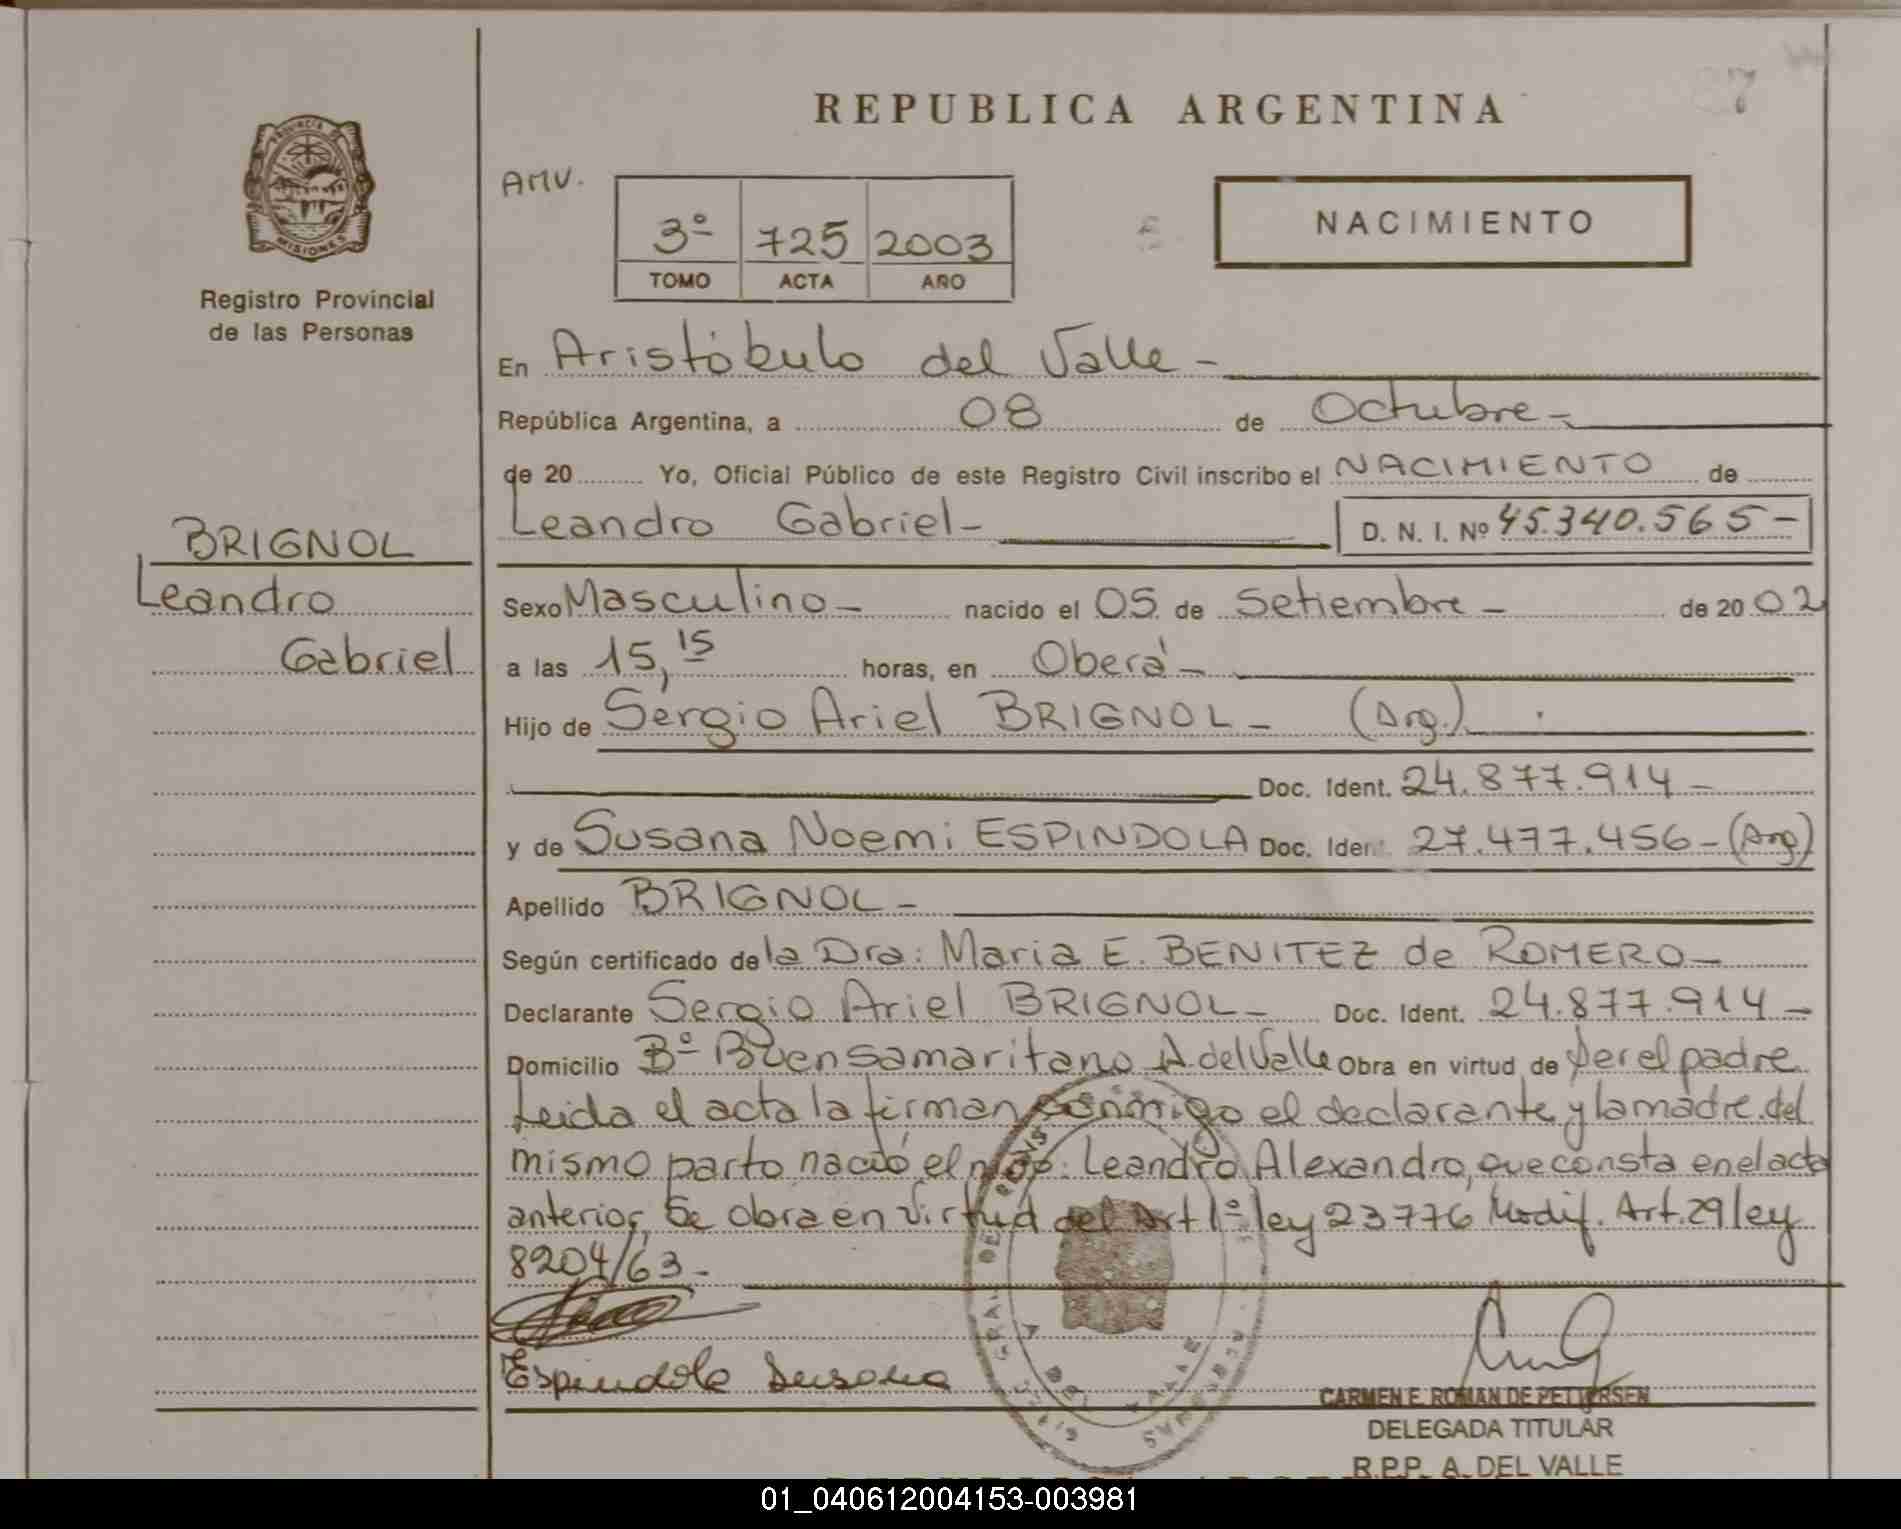 REPUBLICA ARGENTINA
AMV.
3º 725 2003
TOMO ACTA AÑO
NACIMIENTO
PROVINCIA DE MISIONES
Registro Provincial
de las Personas
En Aristóbulo del Valle -
República Argentina, a 08 de Octubre -
de 20 Yo, Oficial Público de este Registro Civil inscribo el NACIMIENTO de
Leandro Gabriel - D. N. I. Nº 45.340.565 -
BRIGNOL
Leandro
Gabriel
Sexo Masculino - nacido el 05 de Setiembre - de 20 02
a las 15,15 horas, en Oberá -
Hijo de Sergio Ariel BRIGNOL - (Arg.)
Doc. Ident. 24.877.914 -
y de Susana Noemi ESPINDOLA Doc. Ident. 27.477.456 - (Arg)
Apellido BRIGNOL -
Según certificado de la Dra: Maria E. BENITEZ de ROMERO -
Declarante Sergio Ariel BRIGNOL - Doc. Ident. 24.877.914 -
Domicilio Bº Buen Samaritano A. del Valle Obra en virtud de ser el padre
Leida el acta la firman conmigo el declarante y la madre. del
mismo parto nació el niño: Leandro Alexandro, que consta en el acta
anterior, Se obra en virtud del Art 1º ley 23776 Modif. Art. 29 ley
8204/63 -
Espindola Susana
CARMEN E. ROMAN DE PETTERSEN
DELEGADA TITULAR
R.P.P. A. DEL VALLE
01_040612004153-003981